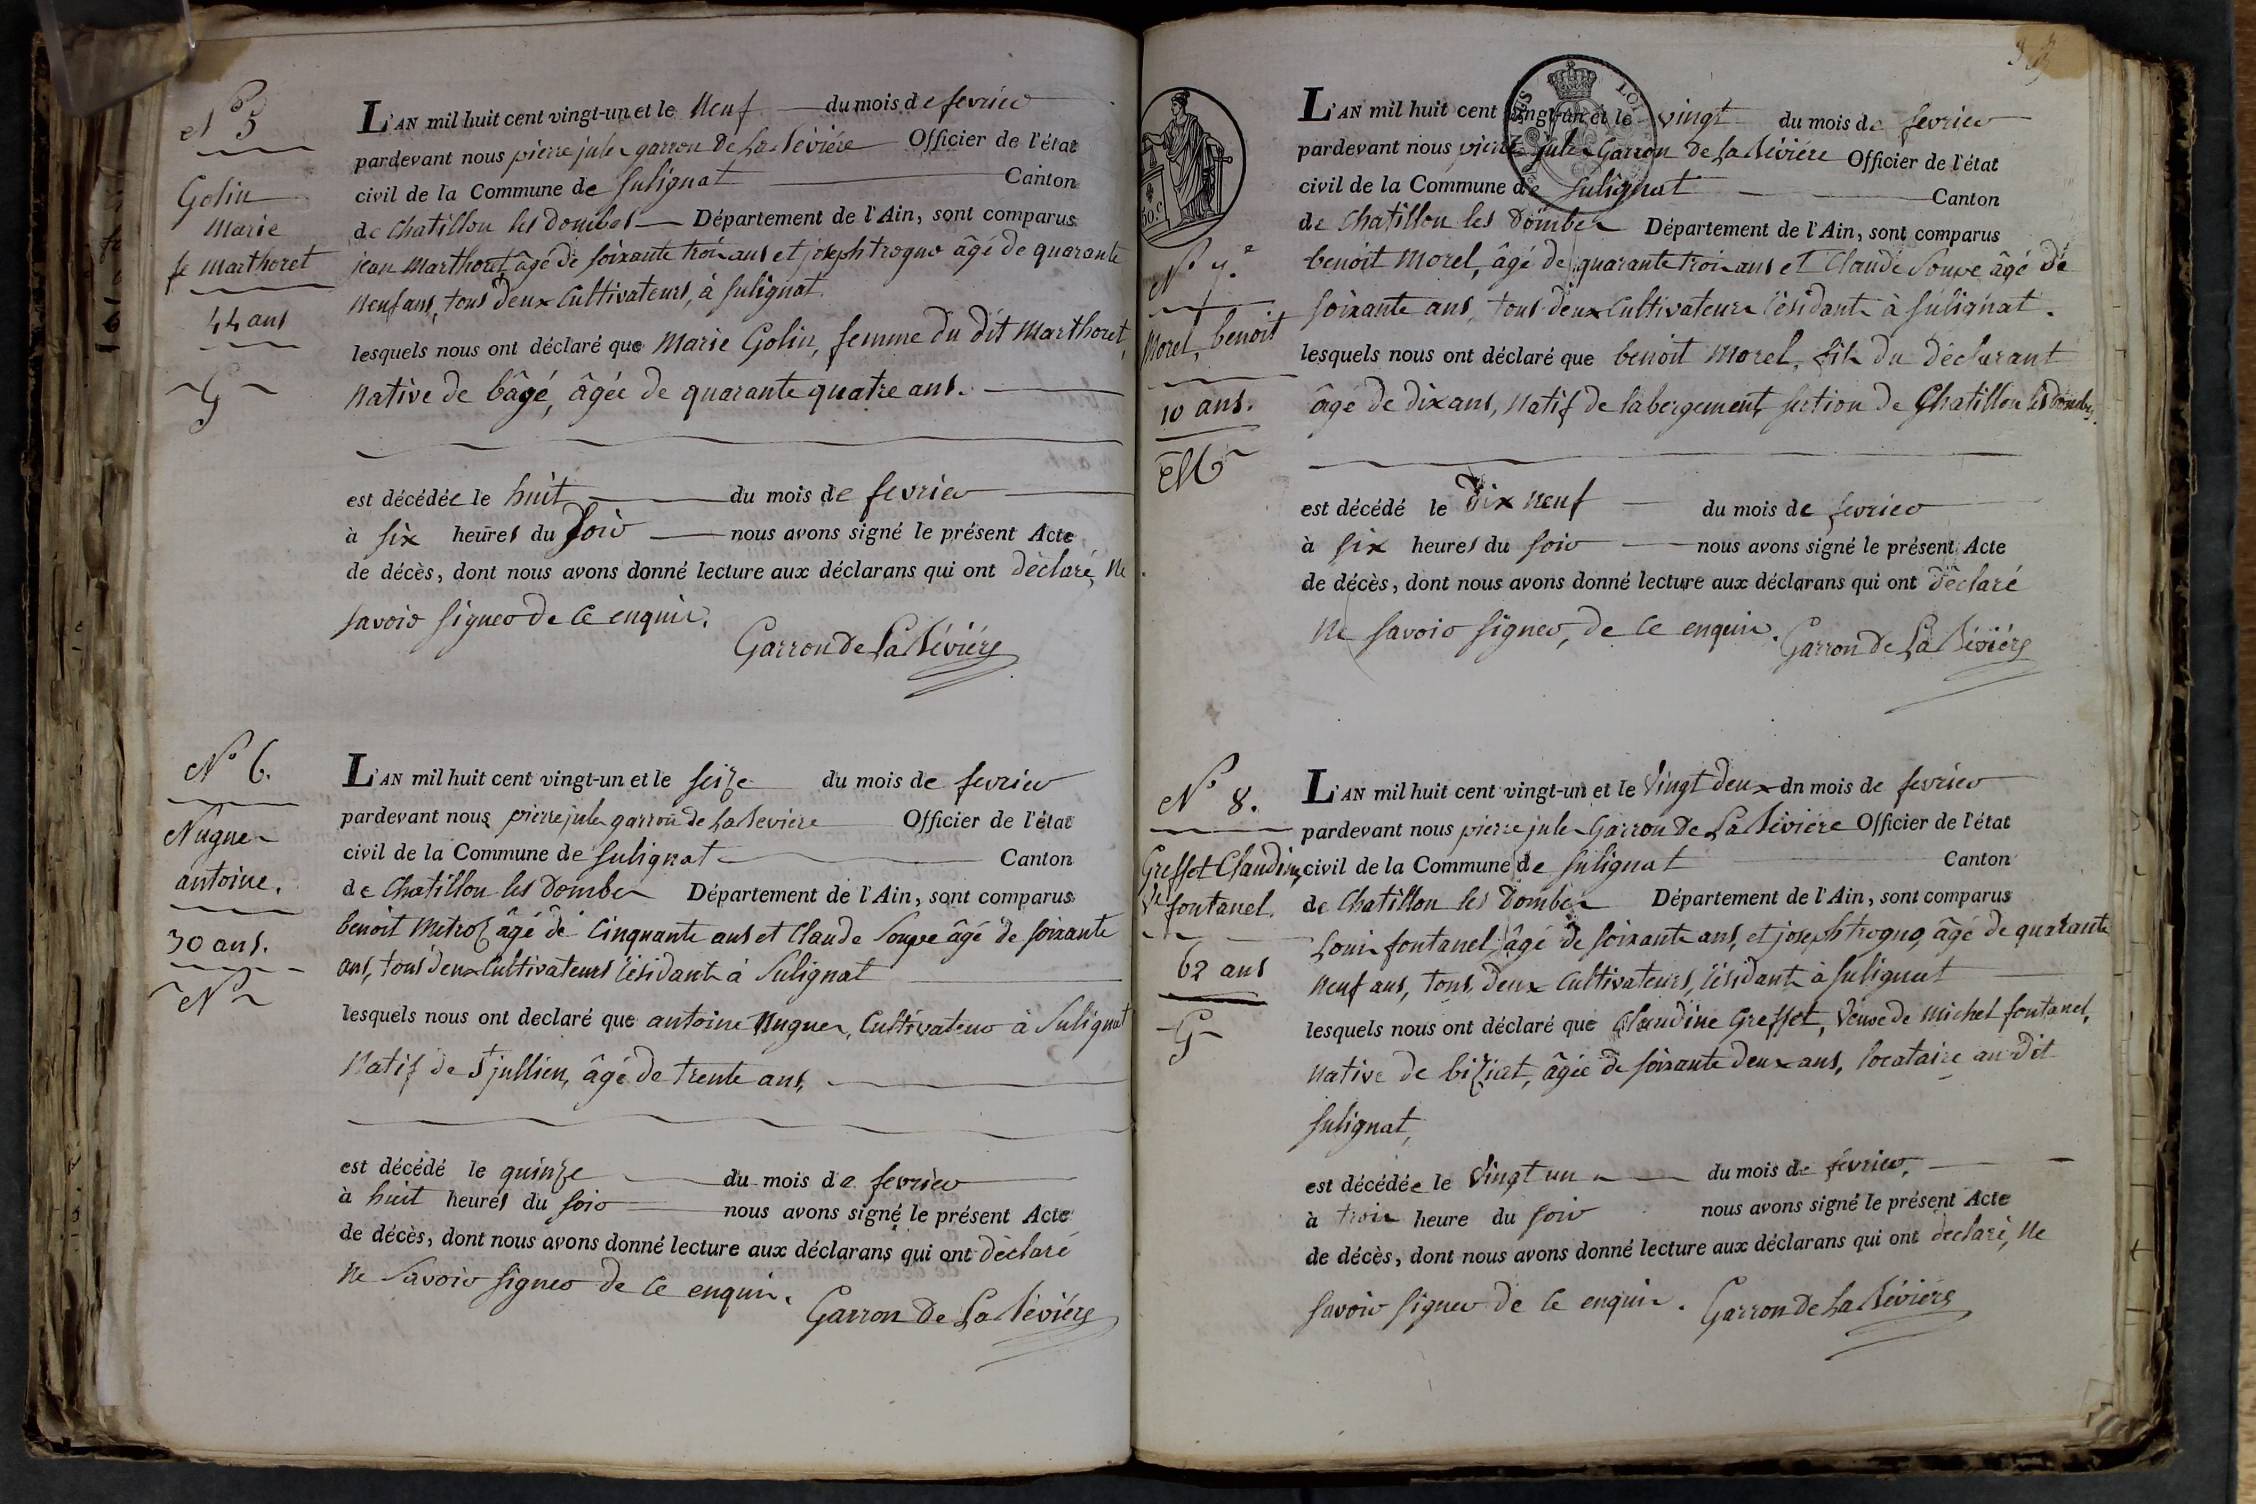 N° 5
Golin
Marie
fe Marthoret
44 ans
G
L'AN mil huit cent vingt-un et le neuf du mois de fevrier
pardevant nous pierre jules garron de La Bévière Officier de l'état
civil de la Commune de Sulignat Canton
de Chatillon les dombes Département de l'Ain, sont comparus
jean Marthoret, âgé de soixante trois ans et joseph trogno âgé de quarante
neuf ans, tous deux Cultivateurs, à Sulignat
lesquels nous ont déclaré que Marie Golin, femme du dit Marthoret,
Native de bâgé, âgée de quarante quatre ans.
est décédée le huit du mois de fevrier
à six heures du soir nous avons signé le présent Acte
de décès, dont nous avons donné lecture aux déclarans qui ont déclaré, ne
savoir signer de ce enquis.
Garron de La Bévière
N° 6.
Nugues
antoine.
30 ans.
N
L'AN mil huit cent vingt-un et le seize du mois de fevrier
pardevant nous pierre jules garron de La Beviere Officier de l'état
civil de la Commune de Sulignat Canton
de Chatillon les dombes Département de l'Ain, sont comparus
benoit Metroz âgé de Cinquante ans et Claude Soupe âgé de soixante
ans, tous deux Cultivateurs résidants à Sulignat
lesquels nous ont declaré que antoine Nugues, Cultivateur à Sulignat
Natif de St jullien, âgé de trente ans,
est décédé le quinze du mois de fevrier
à huit heures du soir nous avons signé le présent Acte
de décès, dont nous avons donné lecture aux déclarans qui ont déclaré
ne savoir signer de ce enquis.
Garron de La Bévière
N° 7.
Morel, benoit
10 ans.
M
L'AN mil huit cent vingt-un et le vingt du mois de fevrier
pardevant nous pierre jules Garron de La Bévière Officier de l'état
civil de la Commune de Sulignat Canton
de Chatillon les Dombes Département de l'Ain, sont comparus
benoit Morel, âgé de quarante trois ans et Claude Soupe âgé de
soixante ans, tous deux Cultivateurs résidants à Sulignat.
lesquels nous ont déclaré que benoit Morel, fils du déclarant
âgé de dix ans, Natif de labergement section de Chatillon les Dombes.
est décédé le Dix neuf du mois de fevrier
à six heures du soir nous avons signé le présent Acte
de décès, dont nous avons donné lecture aux déclarans qui ont déclaré
ne savoir signer, de ce enquis.
Garron de La Bévière
N° 8.
Greffet Claudine
Ve fontanel.
62 ans
G
L'AN mil huit cent vingt-un et le Vingt deux du mois de fevrier
pardevant nous pierre jules Garron de La Bévière Officier de l'état
civil de la Commune de Sulignat Canton
de Chatillon les Dombes Département de l'Ain, sont comparus
Louis fontanel, âgé de soixante ans, et joseph trogno, âgé de quarante
neuf ans, tous deux Cultivateurs, résidants à Sulignat
lesquels nous ont déclaré que Claudine Greffet, Veuve de Michel fontanel,
native de biziat, âgée de soixante deux ans, locataire au dit
Sulignat,
est décédée le Vingt un du mois de fevrier,
à trois heure du soir nous avons signé le présent Acte
de décès, dont nous avons donné lecture aux déclarans qui ont declaré, ne
savoir signer de ce enquis.
Garron de La Bévière